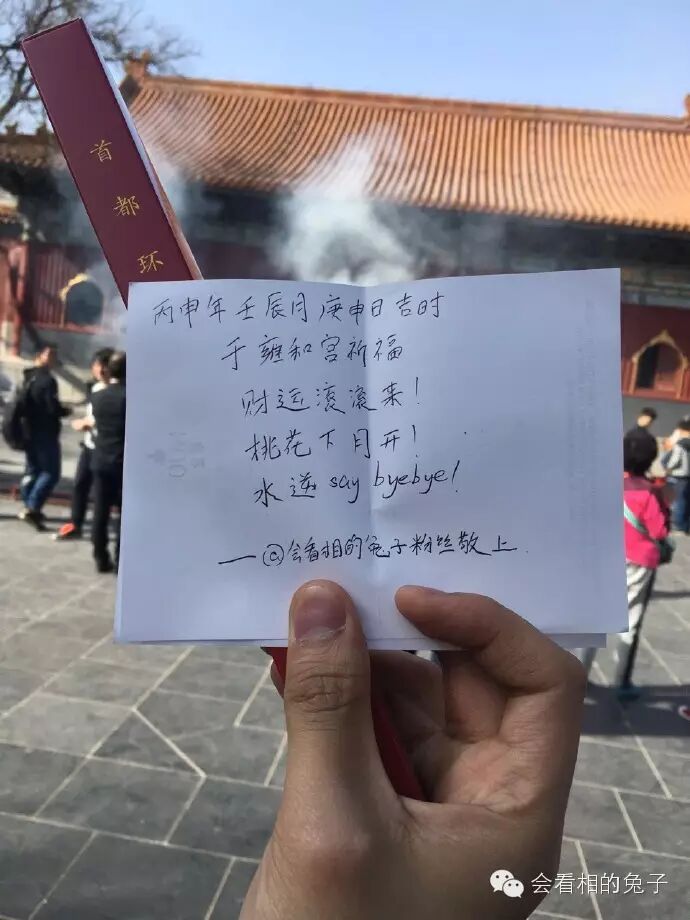 首都环
丙申年壬辰月庚申日吉时
于雍和宫祈福
财运滚滚来!
桃花下月开!
水逆say byebye!
—@会看相的兔子粉丝敬上.
会看相的兔子